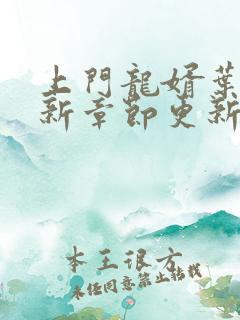 上門龍婿葉
新章節更新
本王很方
未经同意禁止转载